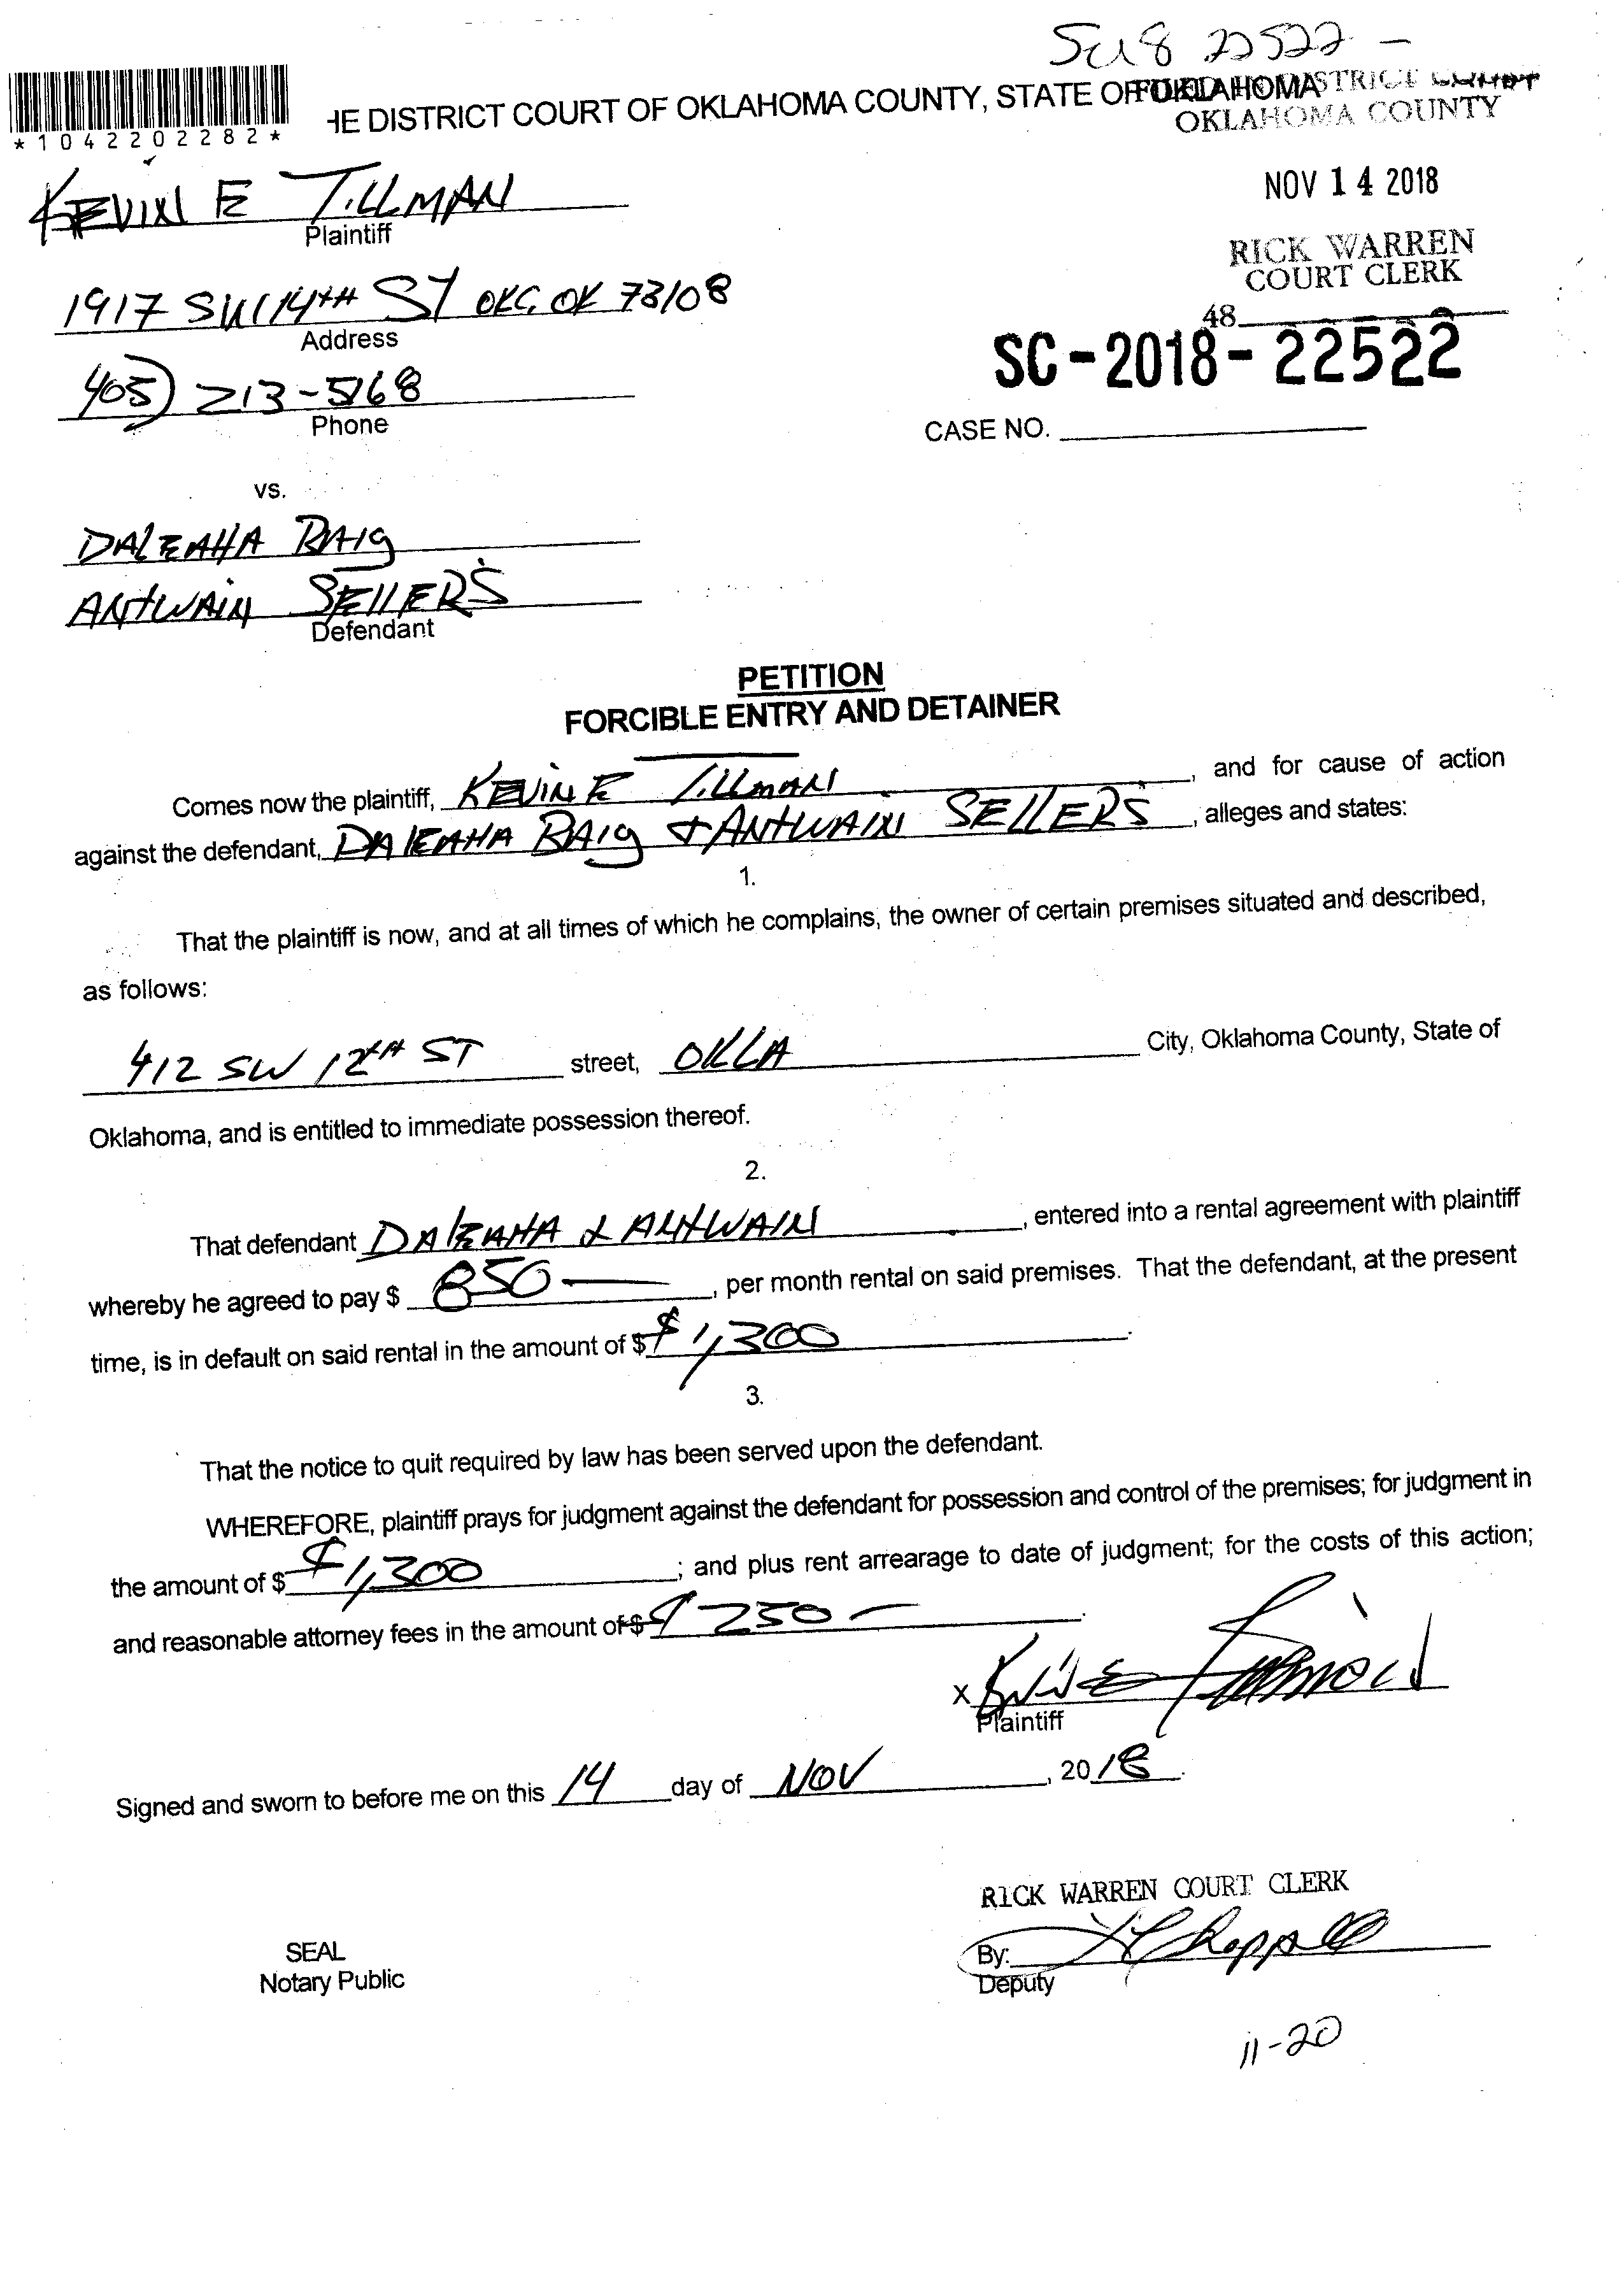 SC18 22522 -
HE DISTRICT COURT OF OKLAHOMA COUNTY, STATE OF OKLAHOMA
FILED IN DISTRICT COURT
OKLAHOMA COUNTY
*1042202282*
NOV 14 2018
KEVIN E TILLMAN
Plaintiff
RICK WARREN
COURT CLERK
1917 SW 14TH ST OKC, OK 73108
Address
48
SC-2018-22522
405) 213-5168
Phone
CASE NO.
vs.
DALEAHA BAIG
ANTWAIN SELLERS
Defendant
PETITION
FORCIBLE ENTRY AND DETAINER
Comes now the plaintiff, KEVIN E TILLMAN, and for cause of action
against the defendant, DALEAHA BAIG & ANTWAIN SELLERS, alleges and states:
1.
That the plaintiff is now, and at all times of which he complains, the owner of certain premises situated and described,
as follows:
412 SW 12TH ST street, OKLA City, Oklahoma County, State of
Oklahoma, and is entitled to immediate possession thereof.
2.
That defendant DALEAHA & ANTWAIN, entered into a rental agreement with plaintiff
whereby he agreed to pay $ 850 —, per month rental on said premises. That the defendant, at the present
time, is in default on said rental in the amount of $ $1,300.
3.
That the notice to quit required by law has been served upon the defendant.
WHEREFORE, plaintiff prays for judgment against the defendant for possession and control of the premises; for judgment in
the amount of $ $1,300; and plus rent arrearage to date of judgment; for the costs of this action;
and reasonable attorney fees in the amount of $ $250 —.
X
Plaintiff
Signed and sworn to before me on this 14 day of NOV, 2018.
RICK WARREN COURT CLERK
SEAL
Notary Public
By:
Deputy
11-20